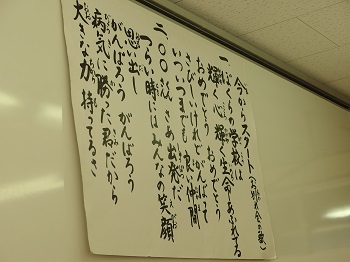 今からスタート(お別れ会の歌)
一 ぼくらの学校は
輝く心 輝く生命あふれてる
おめでとう おめでとう
さびしいけれどがんばって
いついつまでも 良い仲間
二 〇〇さん さあ出発だ
つらい時にはみんなの笑顔
思い出し
がんばろう がんばろう
病気に勝った君だから
大きな力 持ってるさ